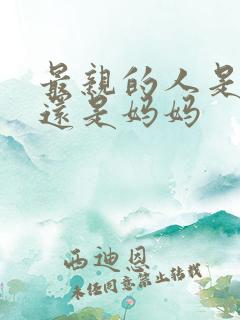 最親的人是
還是媽媽
西迪恩
未经同意禁止转载